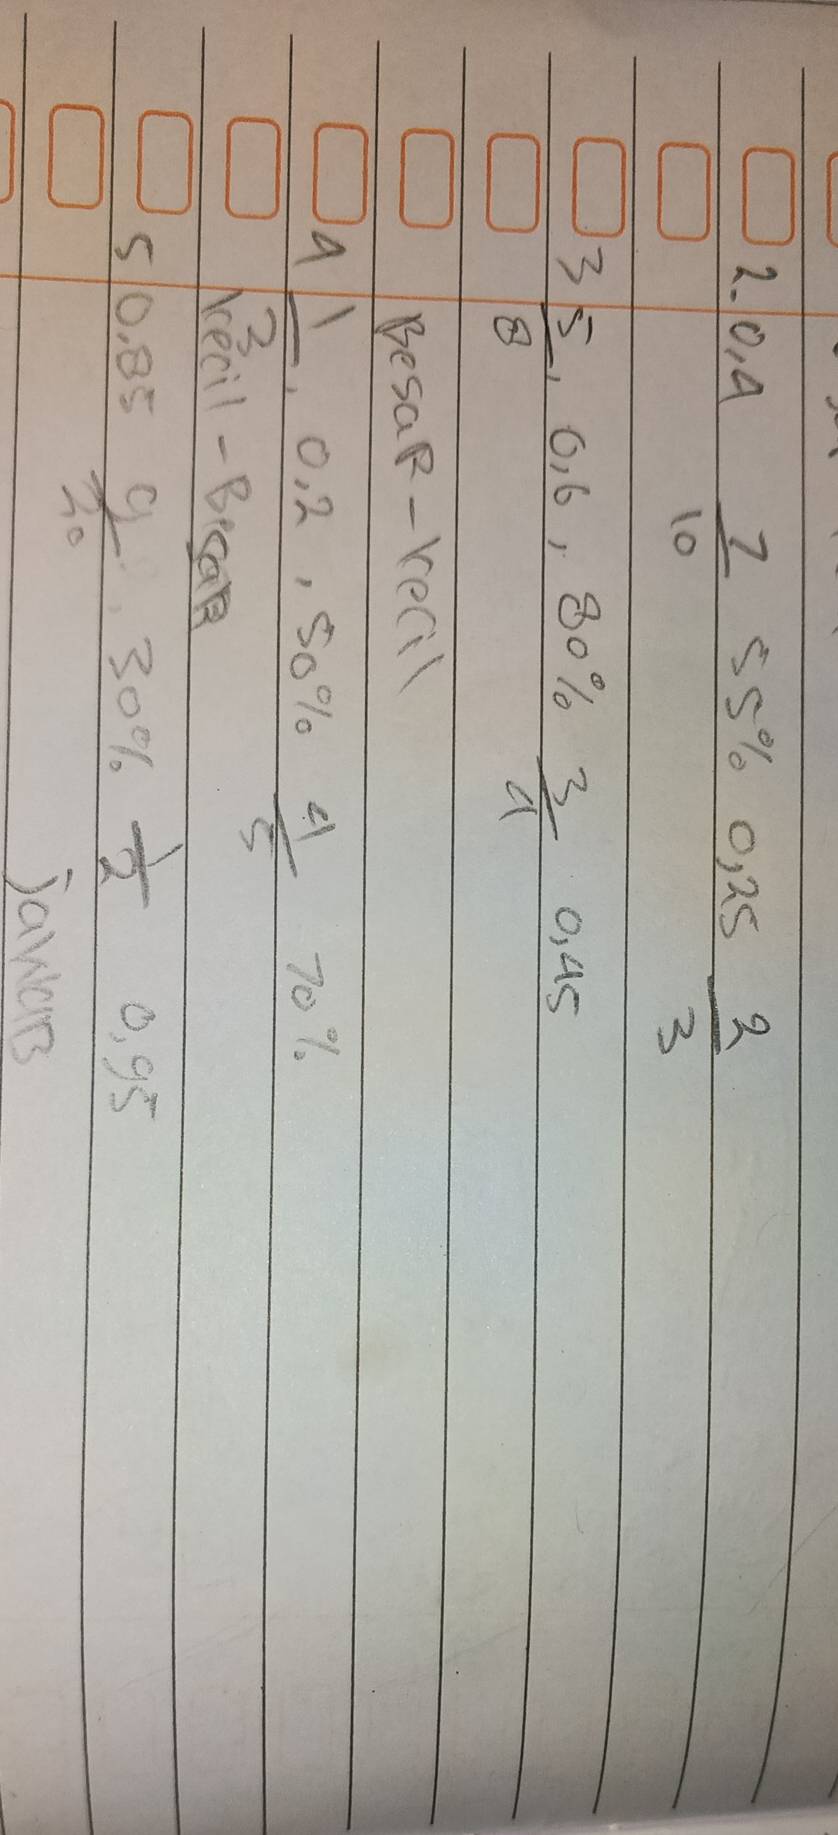 2. 0,4 7/10 55% 0,25 2/3
3 5/8, 0,6, 80% 3/4 0,45
Besar - kecil
4 1/3, 0.2, 50% 4/5 70%
kecil - Besar
5 0.85 9/20, 30% 1/2 0,95
jawab